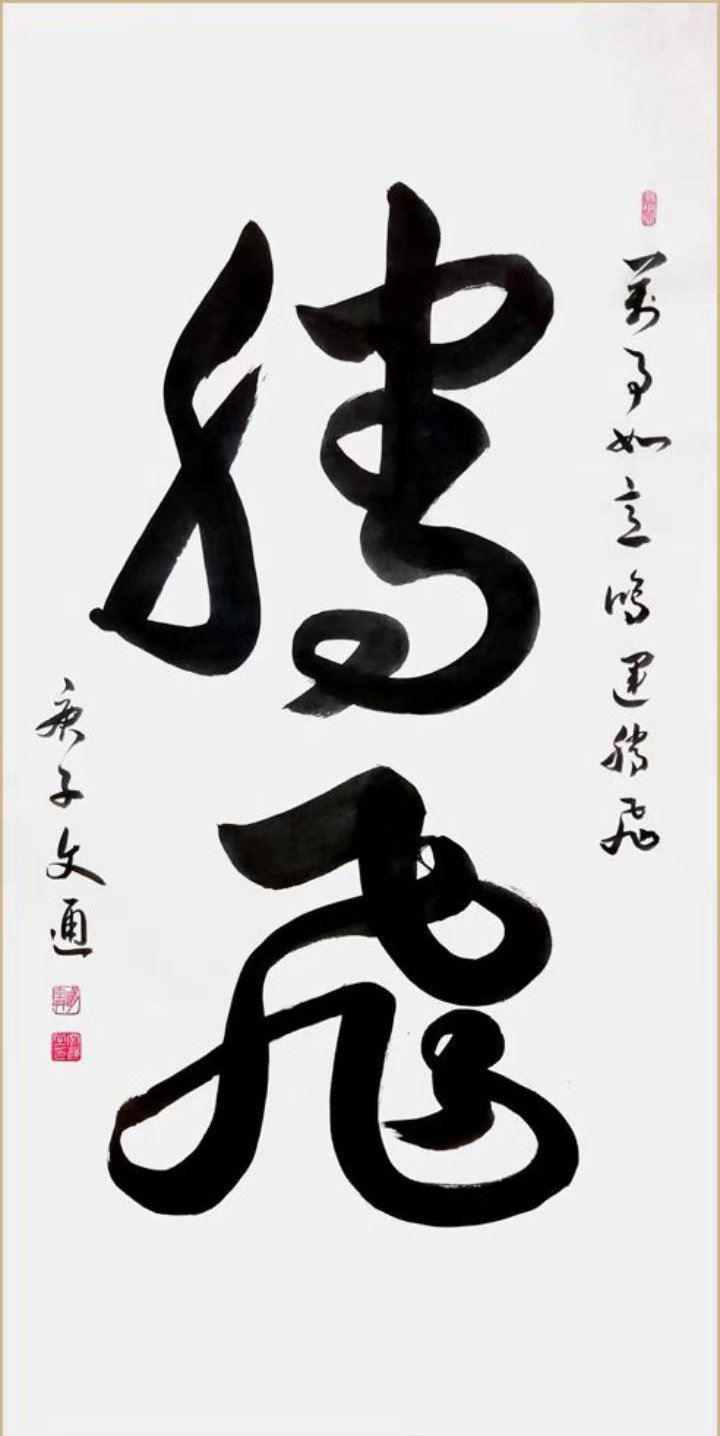 萬事如意鴻運騰飛
騰飛
庚子文通